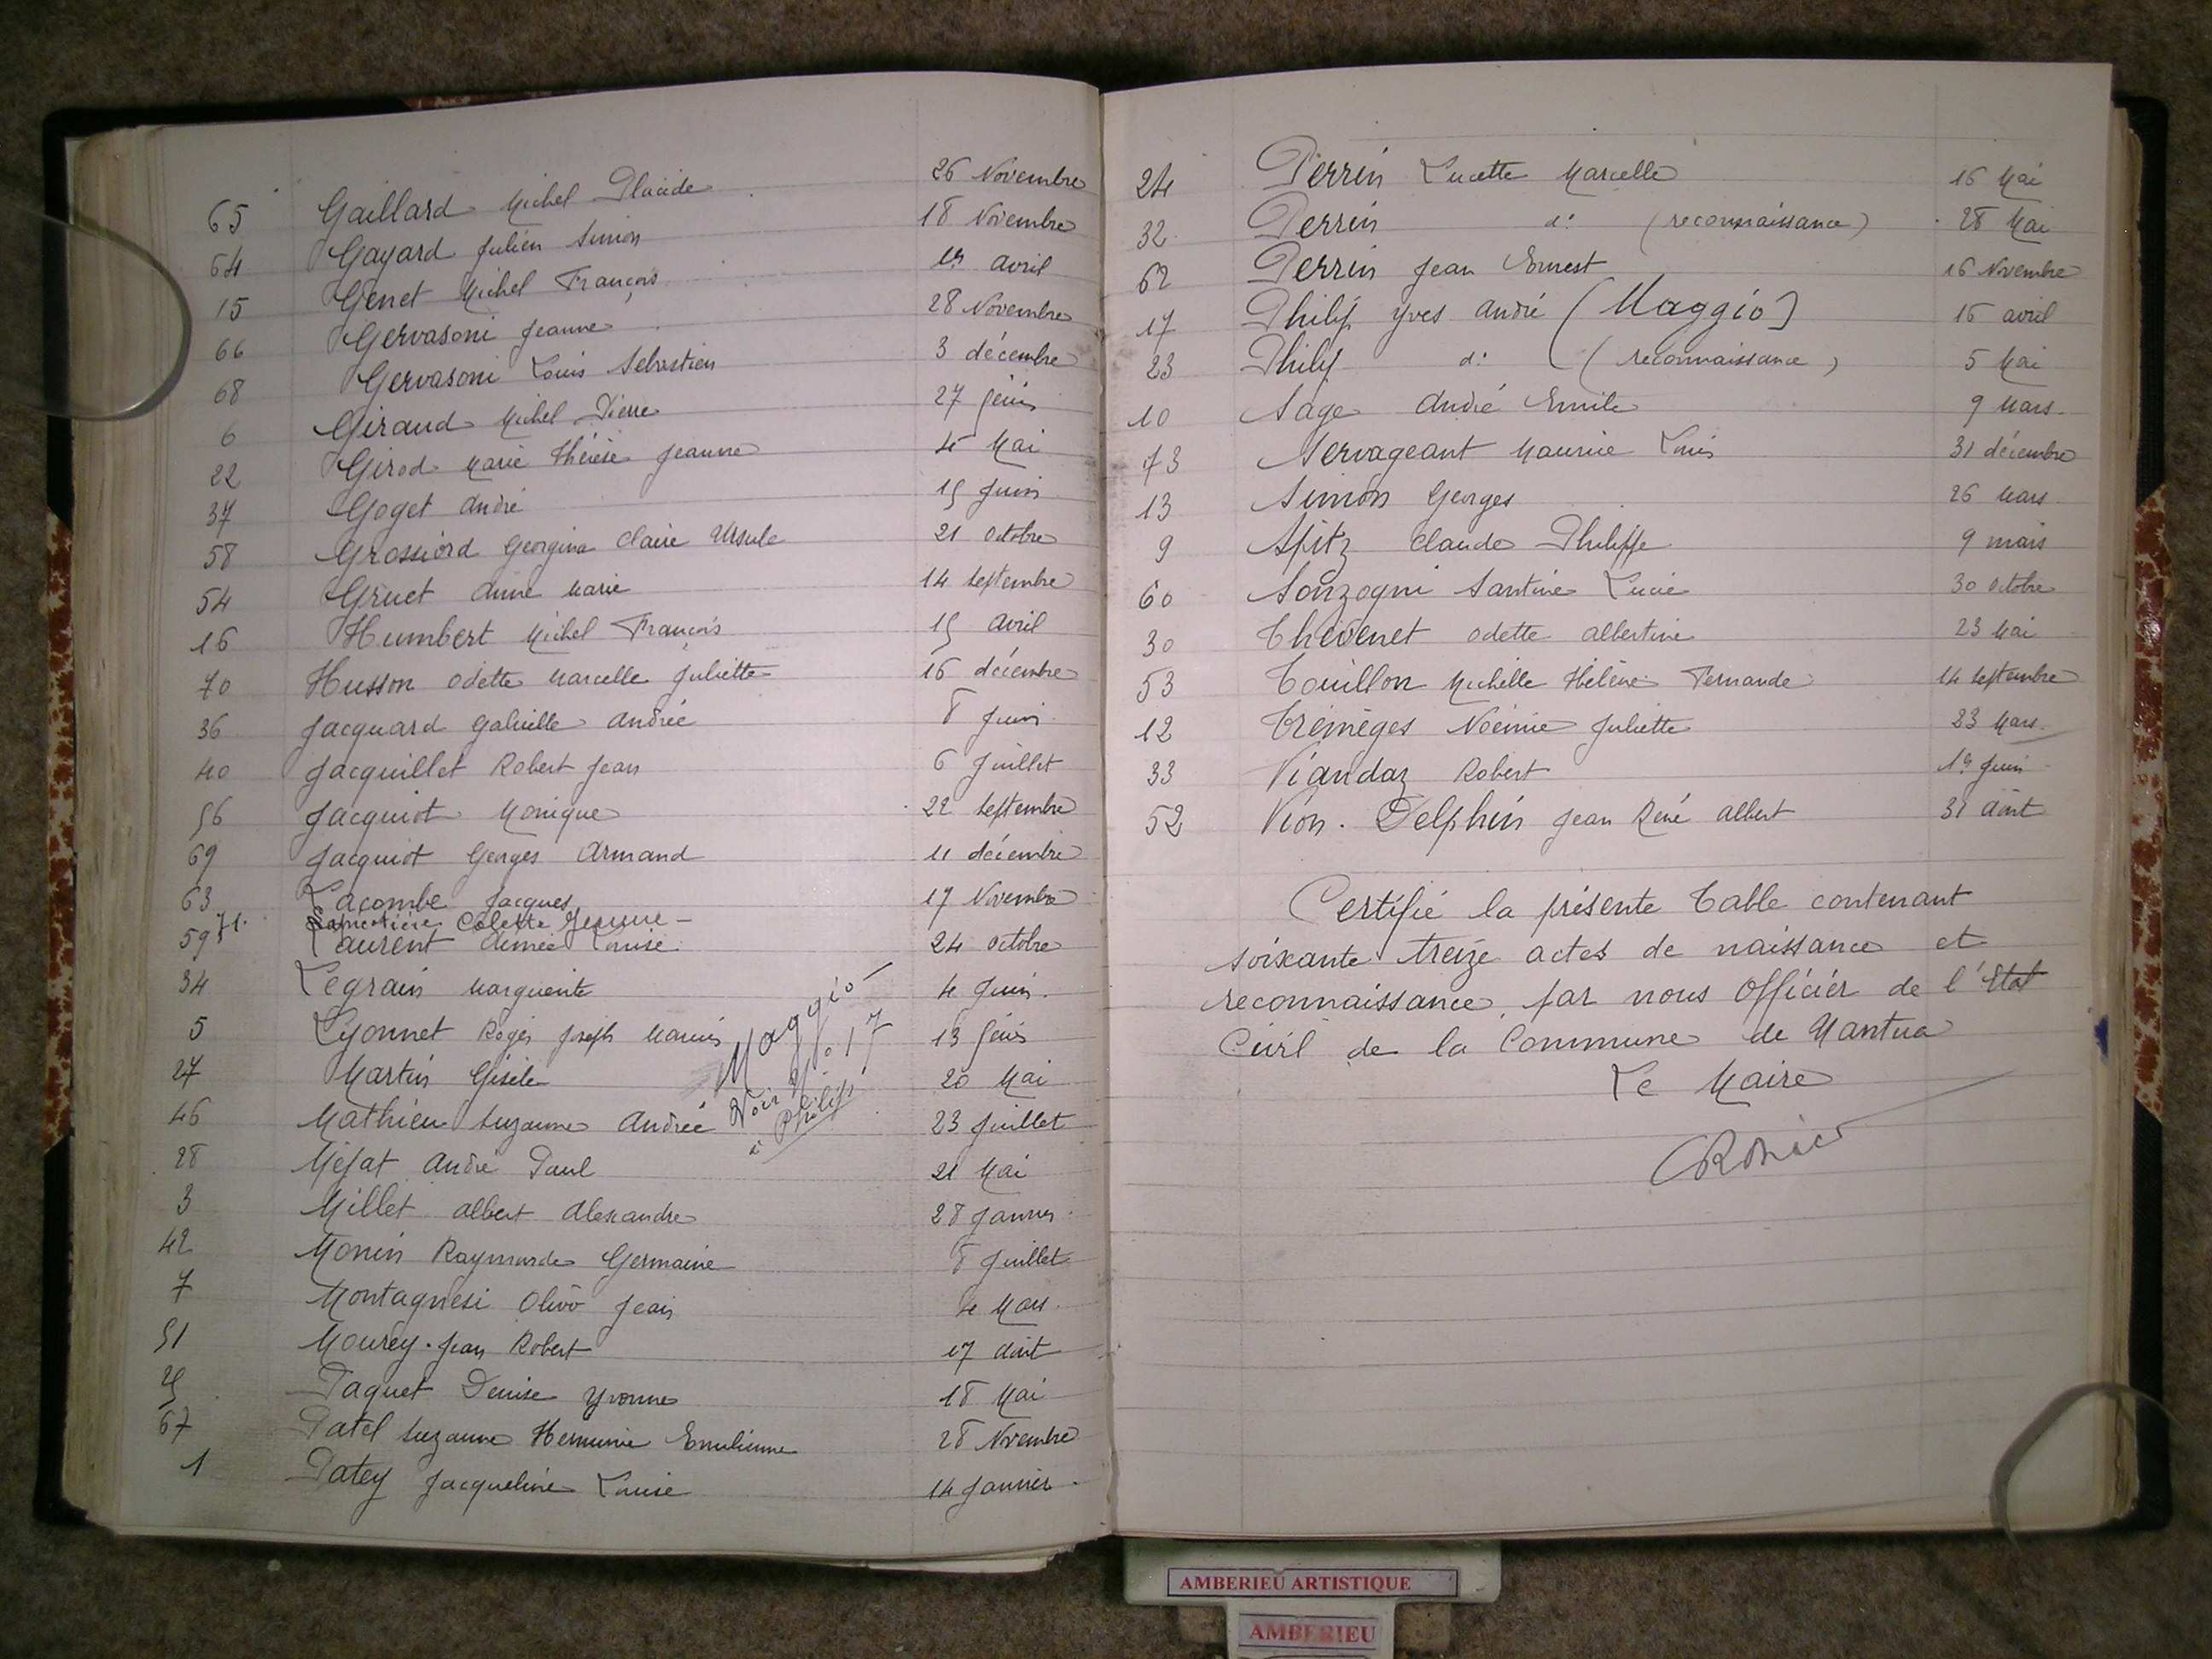 65 Gaillard Michel Placide 26 Novembre
64 Gayard Julien Simon 18 Novembre
15 Genet Michel François 1er avril
66 Gervasoni Jeanne 28 Novembre
68 Gervasoni Louis Sébastien 3 décembre
6 Giraud Michel Pierre 27 févr
22 Girod Marie Thérèse Jeanne 4 Mai
37 Goget André 15 Juin
58 Grossiord Georgina Claire Ursule 21 octobre
54 Gruet Anne Marie 14 septembre
16 Humbert Michel François 15 avril
70 Husson Odette Marcelle Juliette 16 décembre
36 Jacquard Gabrielle Andrée 8 Juin
40 Jacquillet Robert Jean 6 Juillet
56 Jacquiot Monique 22 septembre
69 Jacquiot Georges Armand 11 décembre
63 Lacombe Jacques 17 Novembre
71. Colette Jeanne -
59 Laurent Aimée Louise 24 octobre
34 Legrain Marguerite 4 Juin
5 Lyonnet Roger Joseph Marius 13 févr
27 Martin Gisèle 20 Mai
Maggio -
Voir No 17
à Philip
46 Mathieu Suzanne Andrée 23 Juillet
28 Méjat André Paul 21 Mai
3 Millet Albert Alexandre 28 Janvier
42 Monin Raymonde Germaine 8 Juillet
7 Montagnesi Olivo Jean 4 Mars
51 Mourey Jean Robert 17 août
25 Paquet Denise Yvonne 18 Mai
67 Patel Suzanne Herminie Emilienne 28 Novembre
1 Patey Jacqueline Louise 14 Janvier
24 Perrin Lucette Marcelle 16 Mai
32 Perrin d° (reconnaissance) 28 Mai
62 Perrin Jean Ernest 16 Novembre
17 Philip Yves André (Maggio) 16 avril
23 Philip d° (reconnaissance) 5 Mai
10 Sage André Emile 9 Mars
73 Servageant Maurice Louis 31 décembre
13 Simon Georges 26 Mars
9 Spitz Claude Philippe 9 mars
60 Sonzogni Santine Lucie 30 octobre
30 Thévenet Odette Albertine 23 Mai
53 Touillon Michelle Hélène Fernande 14 septembre
12 Trémèges Noémie Juliette 23 Mars
33 Viandaz Robert 1er Juin
52 Vion-Delphin Jean René Albert 31 août
Certifié la présente Table contenant
soixante treize actes de naissance et
reconnaissance, par nous Officier de l'Etat
Civil de la Commune de Nantua
Le Maire
AMBERIEU ARTISTIQUE
AMBERIEU